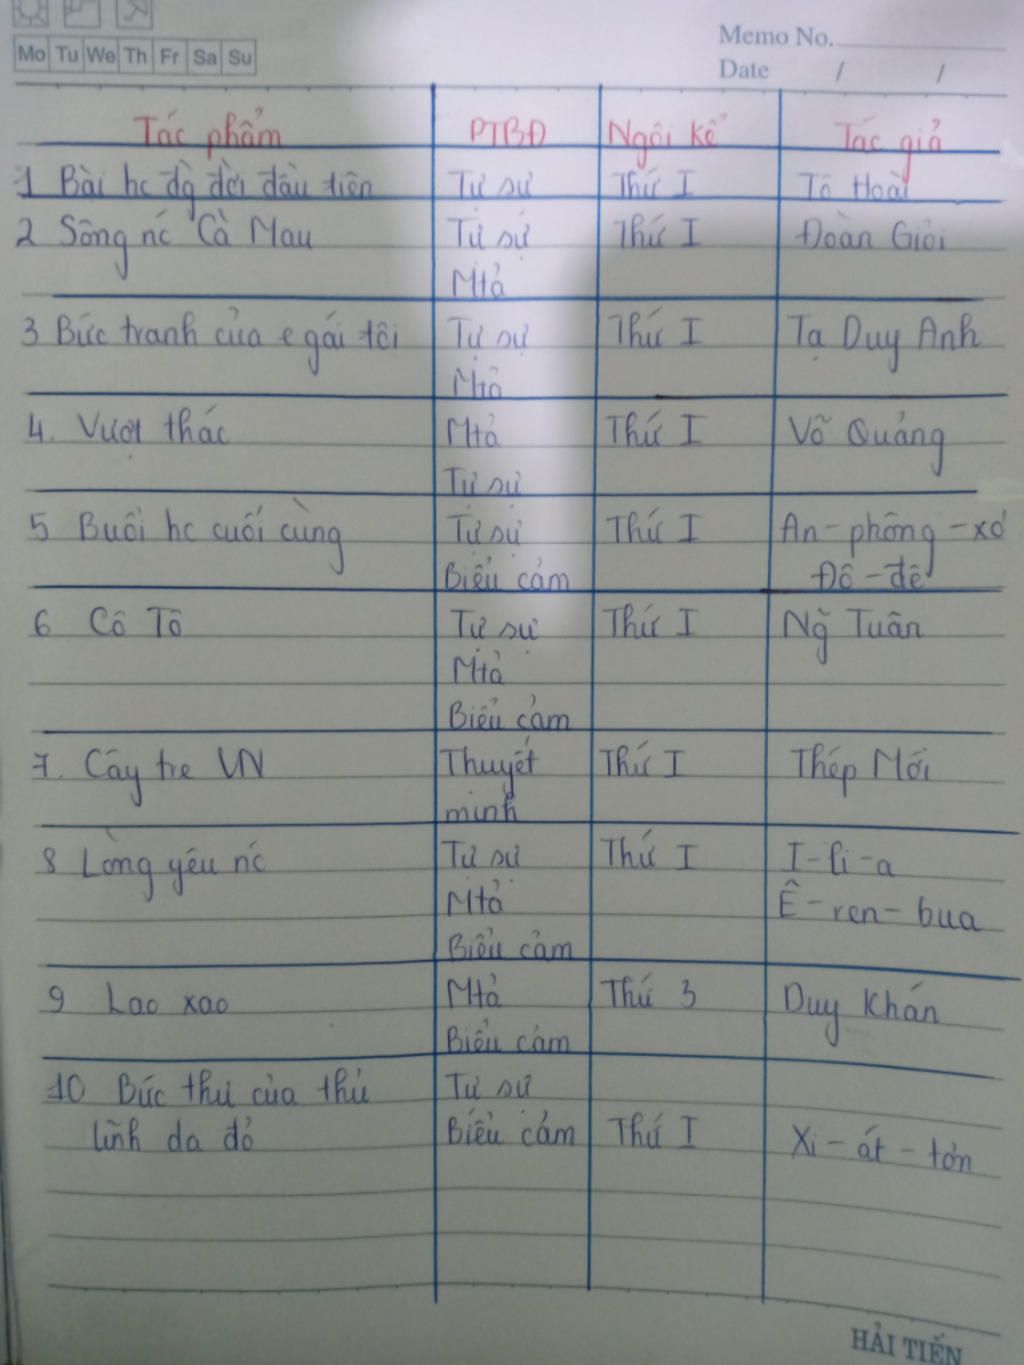 Memo No.
Mo Tu We Th Fr Sa Su
Date / /
Tác phẩm PTBĐ Ngôi kể Tác giả
1 Bài hc đg đời đầu tiên Tự sự Thứ I Tô Hoài
2 Sông nc Cà Mau Tự sự Thứ I Đoàn Giỏi
Mtả
3 Bức tranh của e gái tôi Tự sự Thứ I Tạ Duy Anh
Mtả
4. Vượt thác Mtả Thứ I Võ Quảng
Tự sự
5 Buổi hc cuối cùng Tự sự Thứ I An-phông-xơ
Biểu cảm Đô-đê
6 Cô Tô Tự sự Thứ I Ng~ Tuân
Mtả
Biểu cảm
7. Cây tre VN Thuyết Thứ I Thép Mới
minh
8 Lòng yêu nc Tự sự Thứ I I-li-a
Mtả Ê-ren-bua
Biểu cảm
9 Lao xao Mtả Thứ 3 Duy Khán
Biểu cảm
10 Bức thư của thủ Tự sự
lĩnh da đỏ Biểu cảm Thứ I Xi-át-tơn
HẢI TIẾN